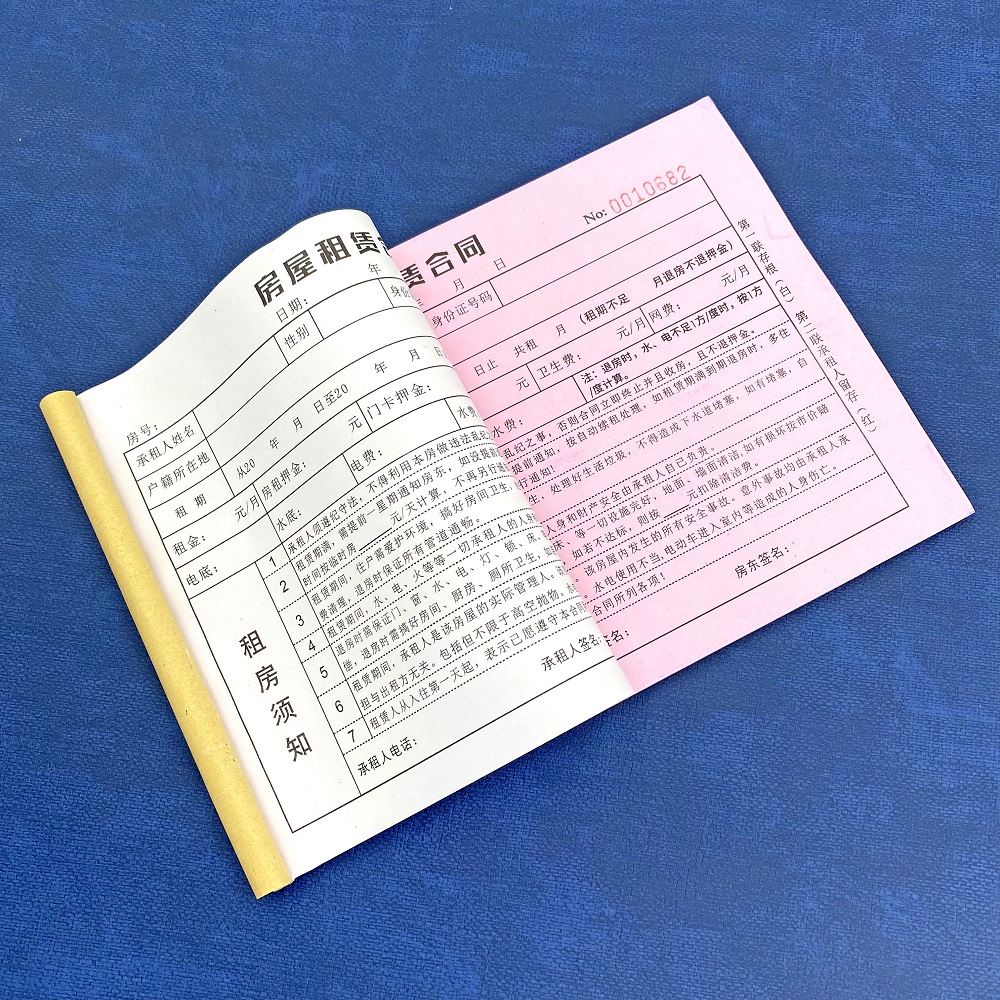 房屋租赁
日期： 年
房号：
承租人姓名 性别 身份
户籍所在地
租期 从20 年 月 日至20 年 月 日
租金： 元/月 房租押金： 元 门卡押金：
电底： 水底： 电费： 水费
租房须知
1 承租人须遵纪守法，不得利用本房做违法乱纪
2 租赁期满，需提前一星期通知房东，如没提前
时间按临时房 元/天计算，不再另行通
3 租赁期间，住户需爱护环境，搞好房间卫生，
费清理，退房时保证所有管道通畅。
4 租赁期间，水、电、火等等一切承租人的人身
5 退房时需保证门、窗、水、电、灯、锁、床、
偿，退房时需搞好房间、厨房、厕所卫生，如
6 租赁期间，承租人是该房屋的实际管理人。
担与出租方无关。包括但不限于高空抛物。
7 租赁人从入住第一天起，表示己愿遵守本合同
承租人电话： 承租人签名
No: 0010682
赁合同
年 月 日
身份证号码
日止 共租 月 （租期不足 月退房不退押金）
元 卫生费： 元/月 网费： 元/月
水费： 注：退房时，水、电不足1方/度时，按1方
/度计算。
乱纪之事，否则合同立即终止并且收房，且不退押金。
提前通知，按自动续租处理，如租赁期满到期退房时，多住
行通知！
生，处理好生活垃圾，不得造成下水道堵塞，如有堵塞，自
人身和财产安全由承租人自己负责。
床、等一切设施完好，地面、墙面清洁，如有损坏按市价赔
如若不达标，则按 元扣除清洁费。
该房屋内发生的所有安全事故。意外事故均由承租人承
水电使用不当，电动车进入室内等造成的人身伤亡。
合同所列各项！
签名： 房东签名：
第一联存根（白） 第二联承租人留存（红）